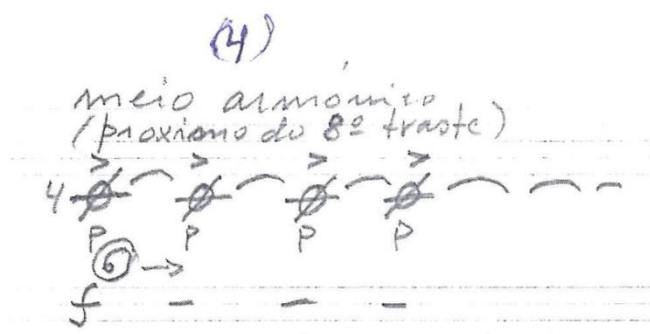 (4)
meio armónico
(próximo do 8º traste)
> > > >
4
p p p p
6 →
f - - -